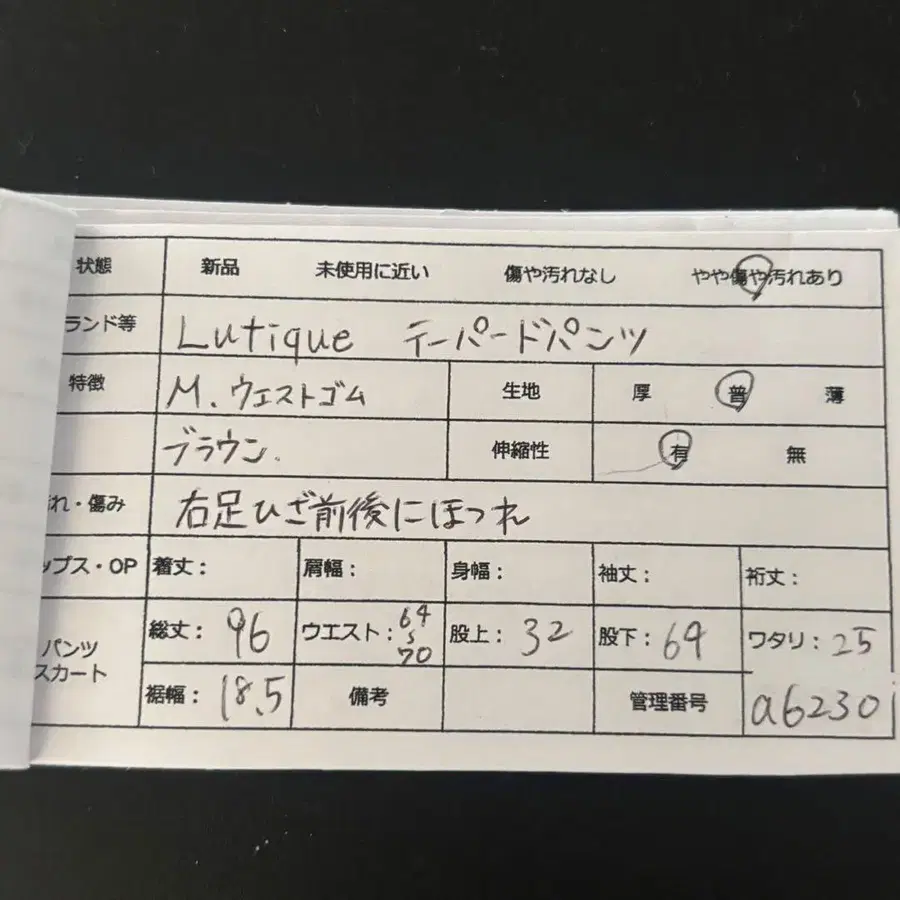 状態 新品 未使用に近い 傷や汚れなし やや傷や汚れあり
ランド等 Lutique テーパードパンツ
特徴 M. ウエストゴム 生地 厚 普 薄
ブラウン. 伸縮性 有 無
れ・傷み 右足ひざ前後にほつれ
ップス・OP 着丈: 肩幅: 身幅: 袖丈: 裄丈:
パンツ
スカート
総丈: 96 ウエスト: 64 ~ 70 股上: 32 股下: 64 ワタリ: 25
裾幅: 18.5 備考 管理番号 a6230i